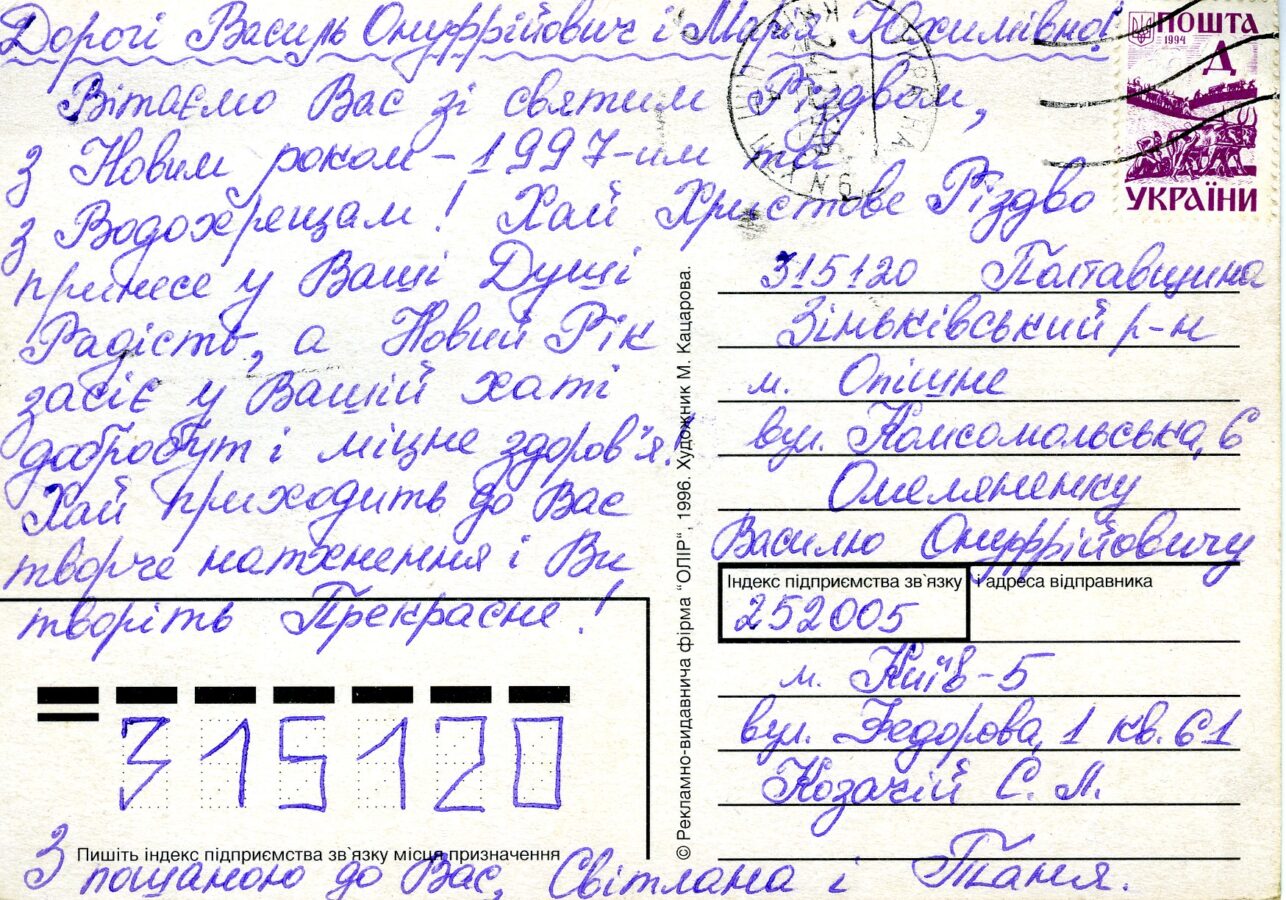 Дорогі Василь Онуфрійович і Марія Юхимівно!
Вітаємо Вас зі святим Різдвом,
з Новим роком – 1997-им та
з Водохрещам! Хай Христове Різдво
принесе у Ваші Душі
Радість, а Новий Рік
засіє у Вашій хаті
добробут і міцне здоров'я!
Хай приходить до Вас
творче натхнення і Ви
творіть Прекрасне!
315120
Пишіть індекс підприємства зв`язку місця призначення
З пошаною до Вас, Світлана і Таня.
© Рекламно-видавнича фірма "ОЛІР", 1996. Художник М. Кацарова.
ПОШТА
1994
Д
УКРАЇНИ
УКРАЇНА
315120 Полтавщина
Зіньківський р-н
м. Опішне
вул. Комсомольська, 6
Омеляненку
Василю Онуфрійовичу
Індекс підприємства зв`язку і адреса відправника
252005
м. Київ-5
вул. Федорова, 1 кв. 61
Козачій С. Л.